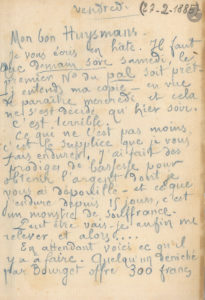 vendredi (27-2-1885)
Mon bon Huysmans.
Je vous écris en hâte. Il faut
que demain soir samedi, le
premier No du pal soit prêt
j'entends ma copie - en vue
de paraître mercredi et cela
ne s'est décidé qu'hier soir.
c'est terrible.
Ce qui ne l'est pas moins
c'est le supplice que je vous
fais endurer. J'ai fait des
prodiges de bassesse pour
obtenir l'argent dont je
vous ai dépouillé - et ce que
j'endure depuis 15 jours, c'est
un monstre de souffrance.
Peut être vais-je enfin me
relever et alors....
En attendant voici ce qu'il
y a à faire. Quelqu'un déniché
par Bourget offre 300 francs